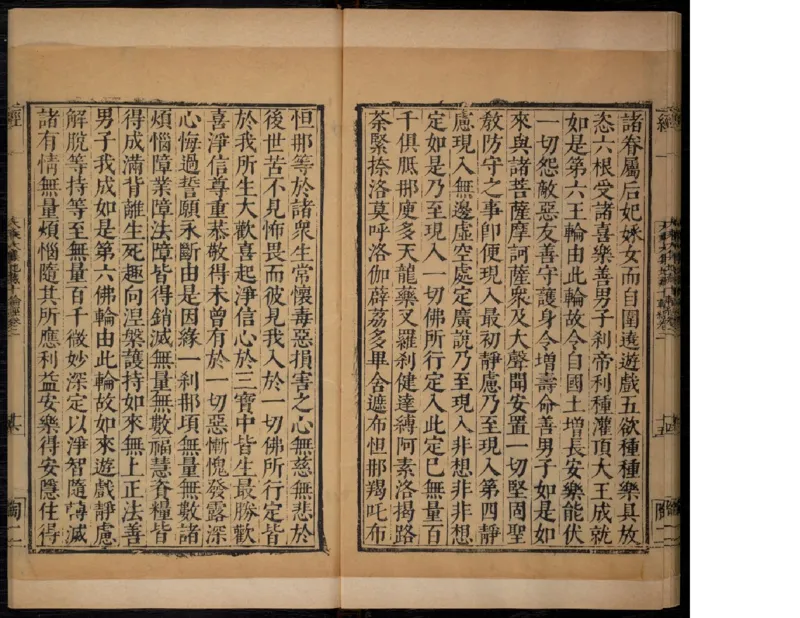 諸眷屬后妃婇女而自圍遶遊戲五欲種種樂具放
恣六根受諸喜樂善男子刹帝利種灌頂大王成就
如是第六王輪由此輪故令自國土增長安樂能伏
一切怨敵惡友善守護身令增壽命善男子如是如
來與諸菩薩摩訶薩衆及大聲聞安置一切堅固聖
敎防守之事卽便現入最初靜慮乃至現入第四靜
慮現入無邊虛空處定廣說乃至現入非想非非想
定如是乃至現入一切佛所行定入此定已無量百
千俱胝那庾多天龍藥叉羅刹健達縛阿素洛揭路
荼緊捺洛莫呼洛伽薜荔多畢舍遮布怛那羯吒布
怛那等於諸衆生常懷毒惡損害之心無慈無悲於
後世苦不見怖畏而彼見我入於一切佛所行定皆
於我所生大歡喜起淨信心於三寶中皆生最勝歡
喜淨信尊重恭敬得未曾有於一切惡慚愧發露深
心悔過誓願永斷由是因緣一刹那項無量無數諸
煩惱障業障法障皆得銷滅無量無數福慧資糧皆
得成滿背離生死趣向涅槃護持如來無上正法善
男子我成如是第六佛輪由此輪故如來遊戲靜慮
解脫等持等至無量百千微妙深定以淨智隨轉滅
諸有情無量煩惱隨其所應利益安樂得安隱住得
經